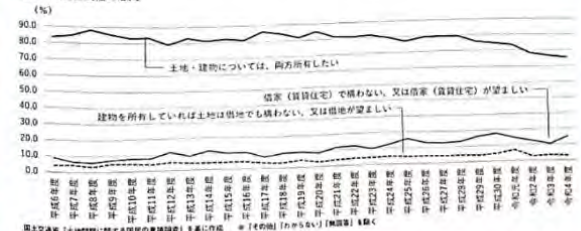 (%)
90.0
80.0
70.0
60.0
50.0
40.0
30.0
20.0
10.0
0.0
土地・建物については、両方所有したい
借家(賃貸住宅)で構わない、又は借家(賃貸住宅)が望ましい
建物を所有していれば土地は借地でも構わない、又は借地が望ましい
平成6年度
平成7年度
平成8年度
平成9年度
平成10年度
平成11年度
平成12年度
平成13年度
平成14年度
平成15年度
平成16年度
平成17年度
平成18年度
平成19年度
平成20年度
平成21年度
平成22年度
平成23年度
平成24年度
平成25年度
平成26年度
平成27年度
平成28年度
平成29年度
平成30年度
令和元年度
令和2年度
令和3年度
令和4年度
国土交通省「土地問題に関する国民の意識調査」を基に作成 ※「その他」「わからない」「無回答」を除く